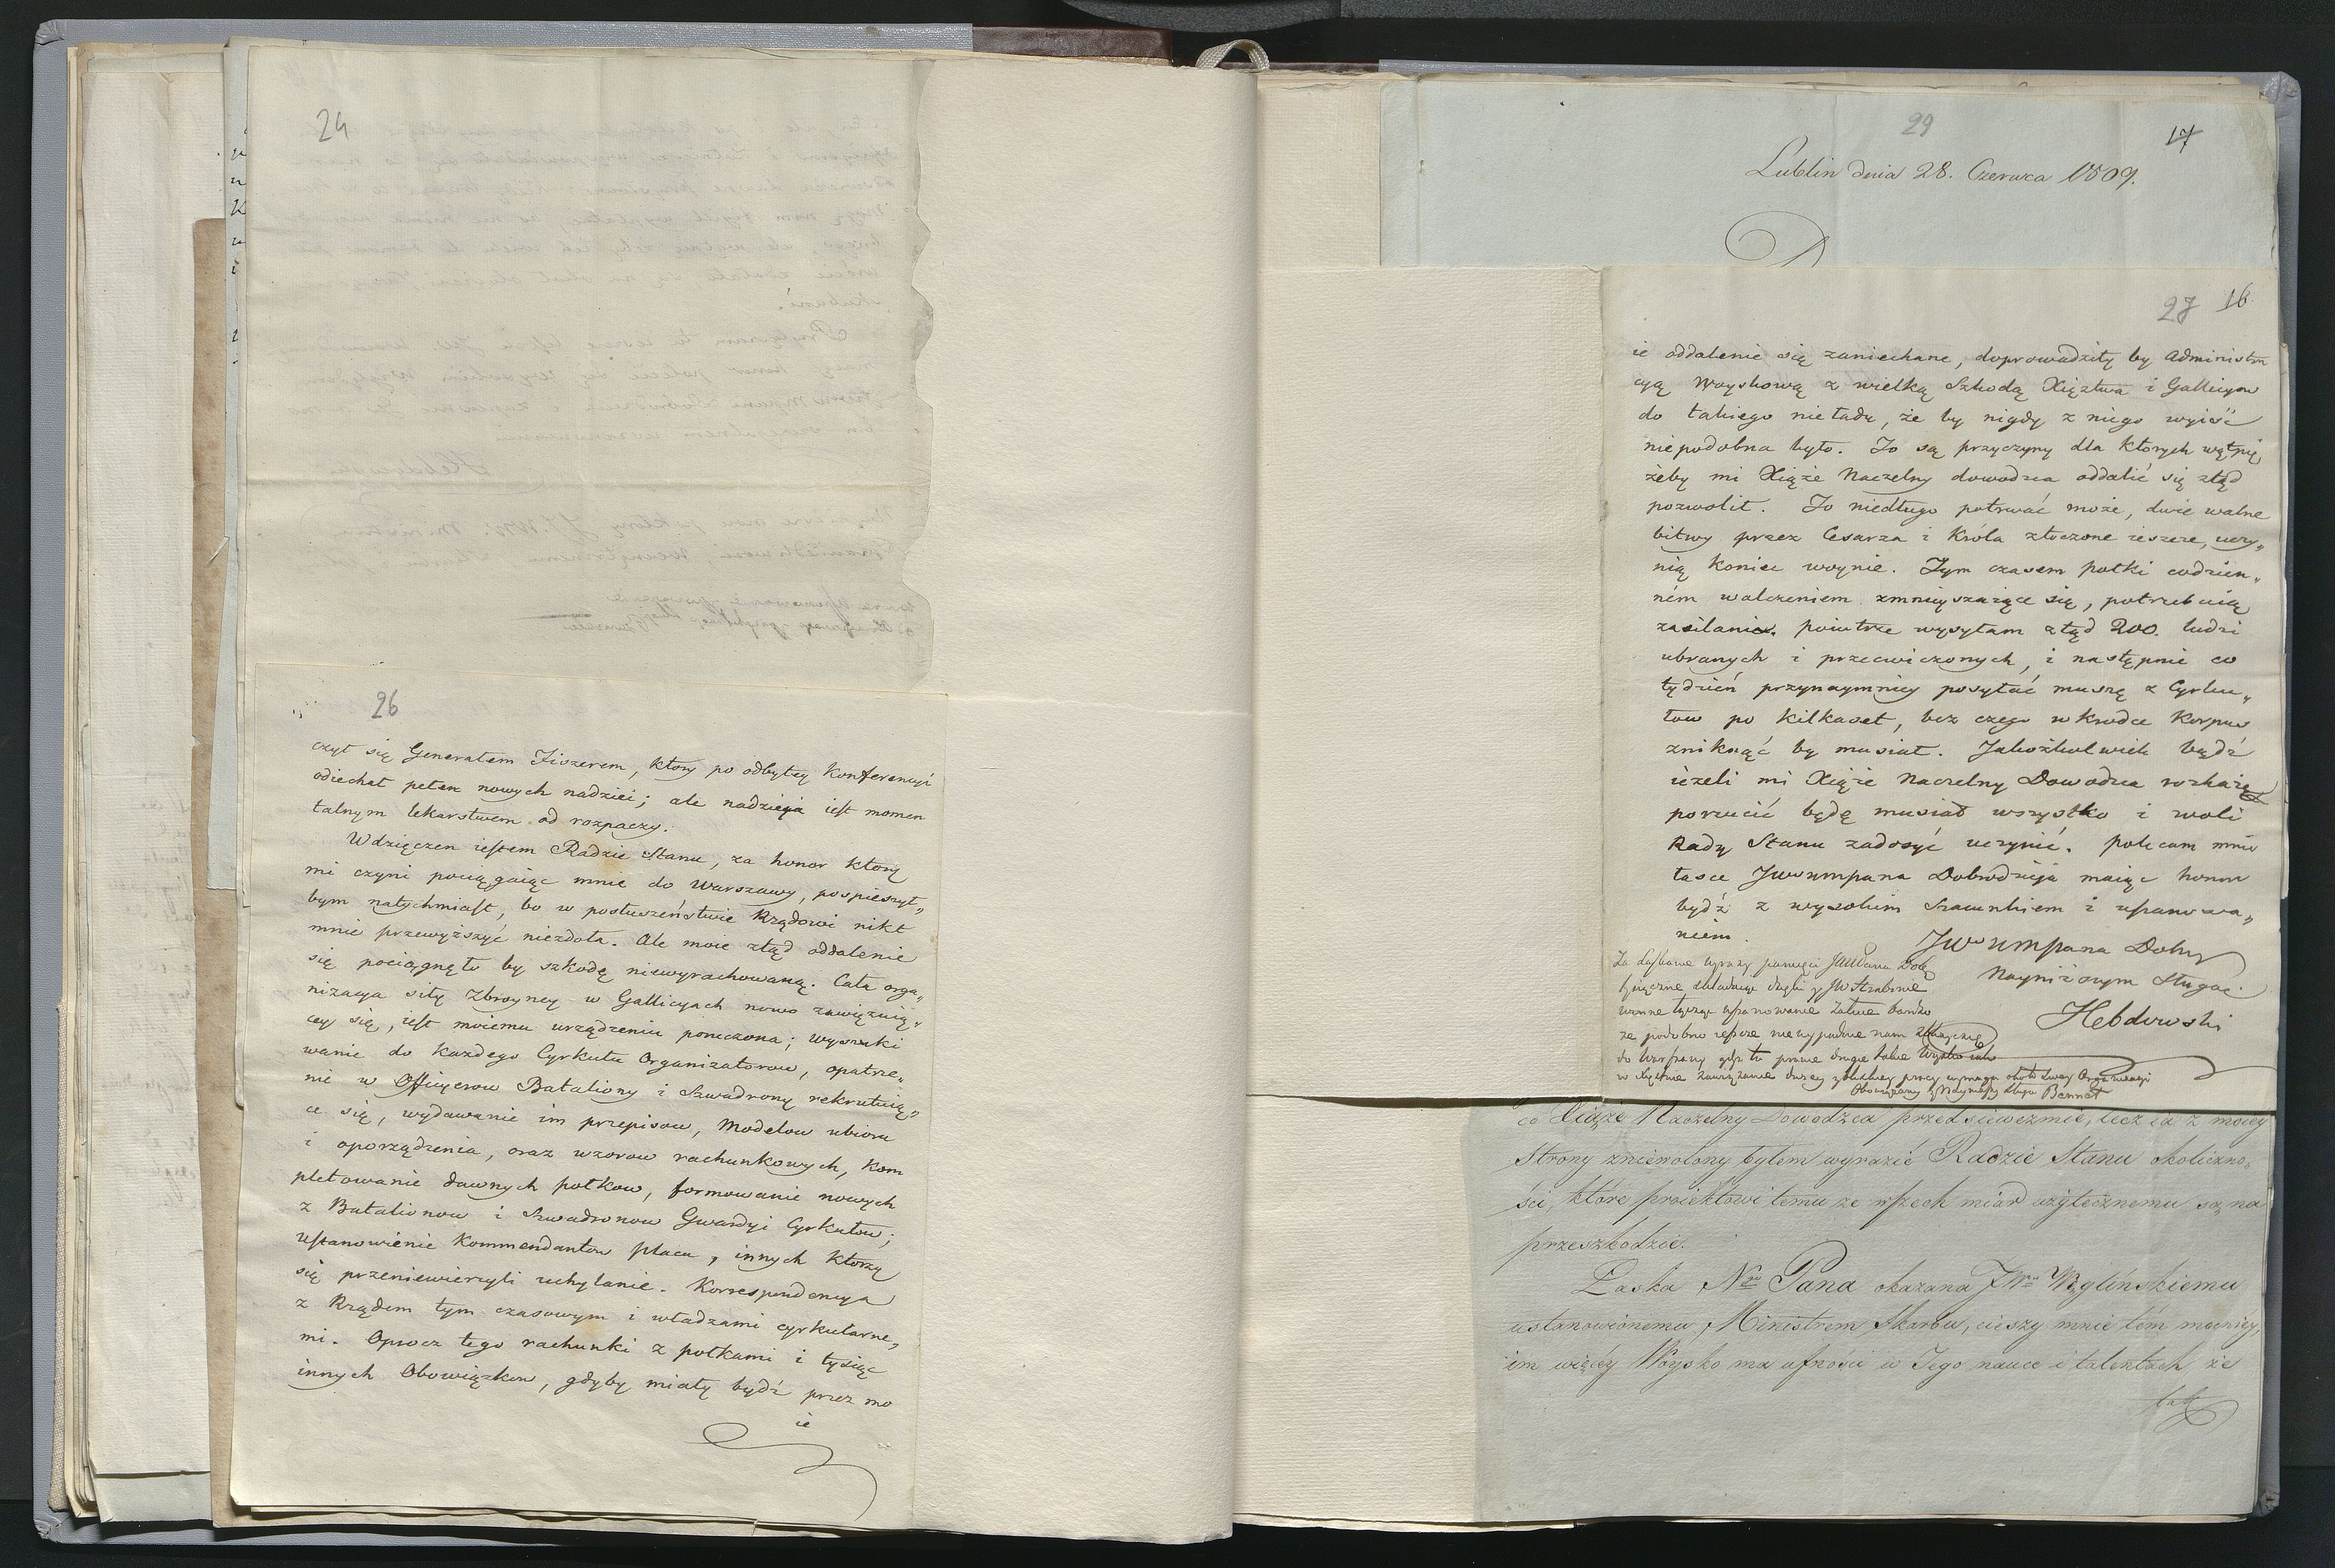 24
26
czył się Generałem Fiszerem, który po odbytey Konferencyi
odiechał pełen nowych nadziei; ale nadzieja iest momen
talnym lekarstwem od rozpaczy.
Wdzięczen iestem Radzie Stanu, za honor który
mi czyni pociągaiąc mnie do Warszawy, pospieszył„
bym natychmiast, bo w posłuszeństwie Rządowi nikt
mnie przewyższyć niezdoła. Ale moie ztąd oddalenie
się pociągnęło by szkodę niewyrachowaną. Cała orga„
nizacya siły zbroyney w Gallicyach nowo zawięzuią„
cey się, iest moiemu urządzeniu poruczona; wyszuki
wanie do każdego Cyrkułu Organizatorow, opatrze„
nie w Officyerow Bataliony i Szwadrony rekrutuią„
ce się, wydawanie im przepisow, Modelow ubioru
i oporządzenia, oraz wzorow rachunkowych, Kom
pletowanie dawnych połkow, formowanie nowych
z Batalionow i Szwadronow Gwardyi Cyrkułow;
ustanowienie Kommendantow placu, innych którzy
się przeniewierzyli uchylanie. Korrespondencya
z Rządem tym czasowym i władzami cyrkularne„
mi. Oprocz tego rachunki z połkami i tysiąc
innych Obowiązkow, gdyby miały bydź przez mo
ie
29
17
Lublin dnia 28. Czerwca 1809.
27 16
ie oddalenie się zaniechane, doprowadziły by Administra
cyą Woyskową z wielką Szkodą Xięztwa i Gallicyow
do takiego nieładu, że by nigdy z niego wyiść
niepodobna było. To są przyczyny dla których wątpię
żeby mi Xiąże Naczelny dowodzca oddalić się ztąd
pozwolił. To niedługo potrwać może, dwie walne
bitwy przez Cesarza i Króla stoczone ieszcze, uczy„
nią koniec woynie. Tym czasem połki codzien„
ném walczeniem zmnieyszaiące się, potrzebuią
zasilania. poiutrze wysyłam ztąd 200. ludzi
ubranych i przecwiczonych, i następnie co
tydzień przynaymniey posyłać muszę z Cyrku„
łow po kilkaset, bez czego wkrodce Korpus
zniknąć by musiał. Jakożkolwiek bądź
ieżeli mi Xiąże Naczelny Dowodzca rozkaże
porzucić będę musiał wszystko i woli
Rady Stanu zadosyć uczynić. polecam mnie
łasce Jwwmpana Dobrodzieja maiąc honor
bydź z wysokim Szacunkiem i uszanowa„
niem.
Jwwmpana Dobr
Nayniższym Sługą.
Hebdowski
Za łaskawe wyrazy pamięci
uszanowanie
że podobno ieszcze nie wypadnie nam
do Warszawy gdyż tu prawie drugie takie Woysko iak
w Xięstwie
Bennet
co Xiąże Naczelny Dowodzca przedsięwezmie, lecz ia z moiey
strony zniewolony byłem wyrazić Radzie Stanu okoliczno„
ści, które proiektowi temu ze wszech miar użytecznemu są na
przeszkodzie.
Łaska N^go Pana okazana JW^u Węglińskiemu
ustanowionemu Ministrem Skarbu, cieszy mnie tém mocniéy,
im więcéy Woysko ma ufności w Jego nauce i talentach że